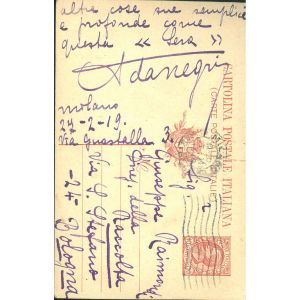 altre cose sue semplici
e profonde come
questa « Sera »
Ada Negri
Milano
27-2-19.
Via Guastalla 3.
CARTOLINA POSTALE ITALIANA
(CARTE POSTALE D'ITALIE)
Sig.
Giuseppe Raimondi
Dirett. della
Raccolta
Via S. Stefano
-24- Bologna